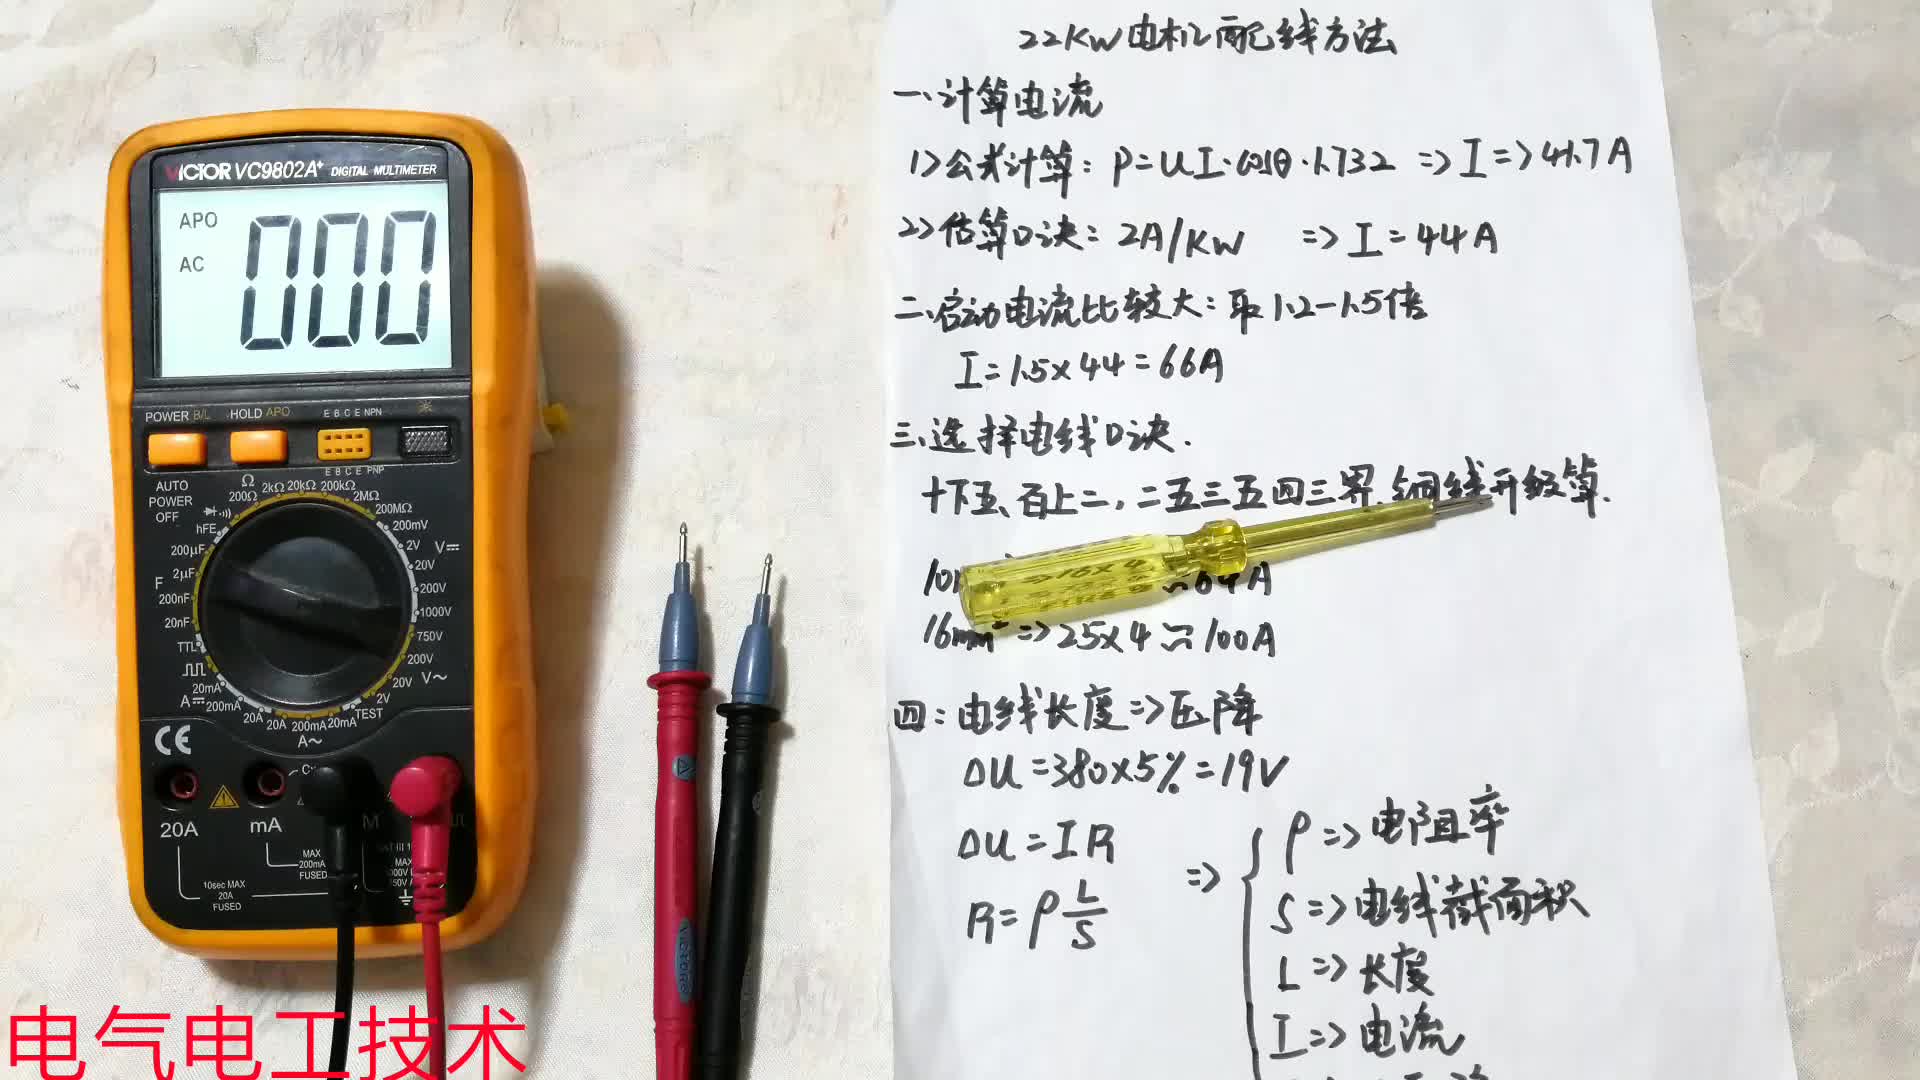 VICTOR VC9802A+ DIGITAL MULTIMETER
APO
AC
000
POWER B/L HOLD APO E B C E NPN
E B C E PNP
AUTO
POWER
OFF
Ω
200Ω 2kΩ 20kΩ 200kΩ 2MΩ 200MΩ
hFE
200mV
2V V
20V
200V
1000V
750V
200V
20V V~
2V
TEST
F
200μF
2μF
200nF
20nF
TTL
20mA
200mA
20A
A
20A 200mA 20mA
A~
CE
20A
mA
10sec MAX
20A
FUSED
MAX
200mA
FUSED
22KW电机配线方法
一、计算电流
1>公式计算:P=UI·cosθ·1.732 => I => 41.7A
2>估算口诀:2A/KW => I=44A
二、启动电流比较大:取1.2-1.5倍
I=1.5×44=66A
三、选择电线口诀.
十下五、百上二,二五三五四三界,铜线升级算.
16mm² => 25×4≈100A
四:电线长度=>压降
ΔU=380×5%=19V
ΔU=IR
R=ρL/S
=>
ρ=>电阻率
S=>电线截面积
L=>长度
I=>电流
电气电工技术